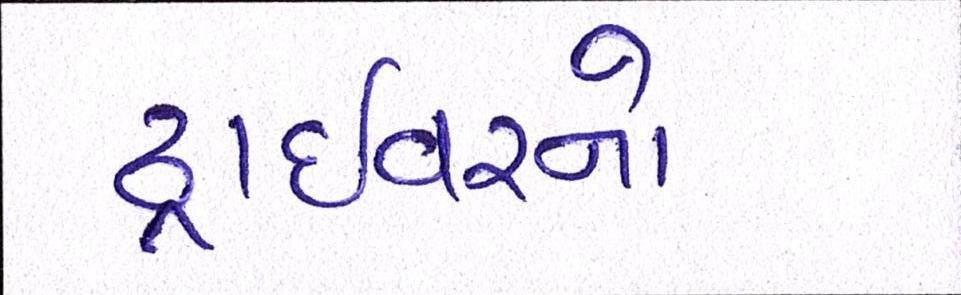 ડ્રાઈવરનો